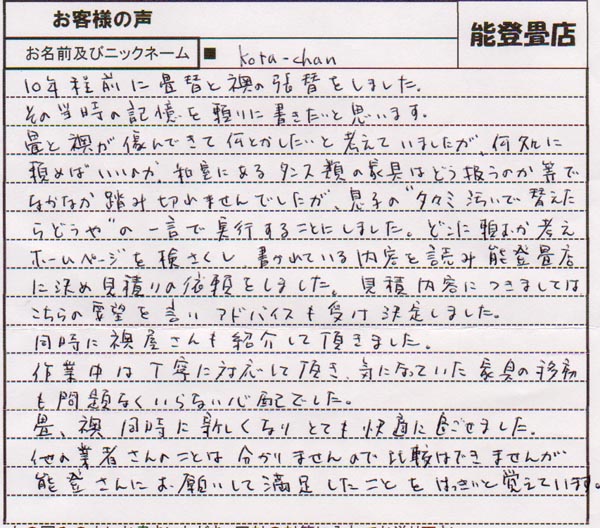 お客様の声
能登畳店
お名前及びニックネーム ■ kota-chan
10年程前に畳替と襖の張替をしました。
その当時の記憶を頼りに書きたいと思います。
畳と襖が傷んできて何とかしたいと考えていましたが、何処に
頼めばいいのか、和室にあるタンス類の家具はどう扱うのか等で
なかなか踏み切れませんでしたが、息子の“タタミ汚いで替えた
らどうや”の一言で実行することにしました。どこに頼むか考え
ホームページを検さくし、書かれている内容を読み能登畳店
に決め見積りの依頼をしました。見積内容につきましては
こちらの要望を言いアドバイスも受け決定しました。
同時に襖屋さんも紹介して頂きました。
作業中は丁寧に対応して頂き、気になっていた家具の移動
も問題なくいらない心配でした。
畳、襖同時に新しくなりとても快適に過ごせました。
他の業者さんのことは分かりませんので比較はできませんが
能登さんにお願いして満足したことをはっきりと覚えています。